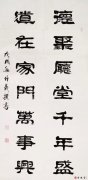 德聚廳堂千年盛
道在家門萬事興